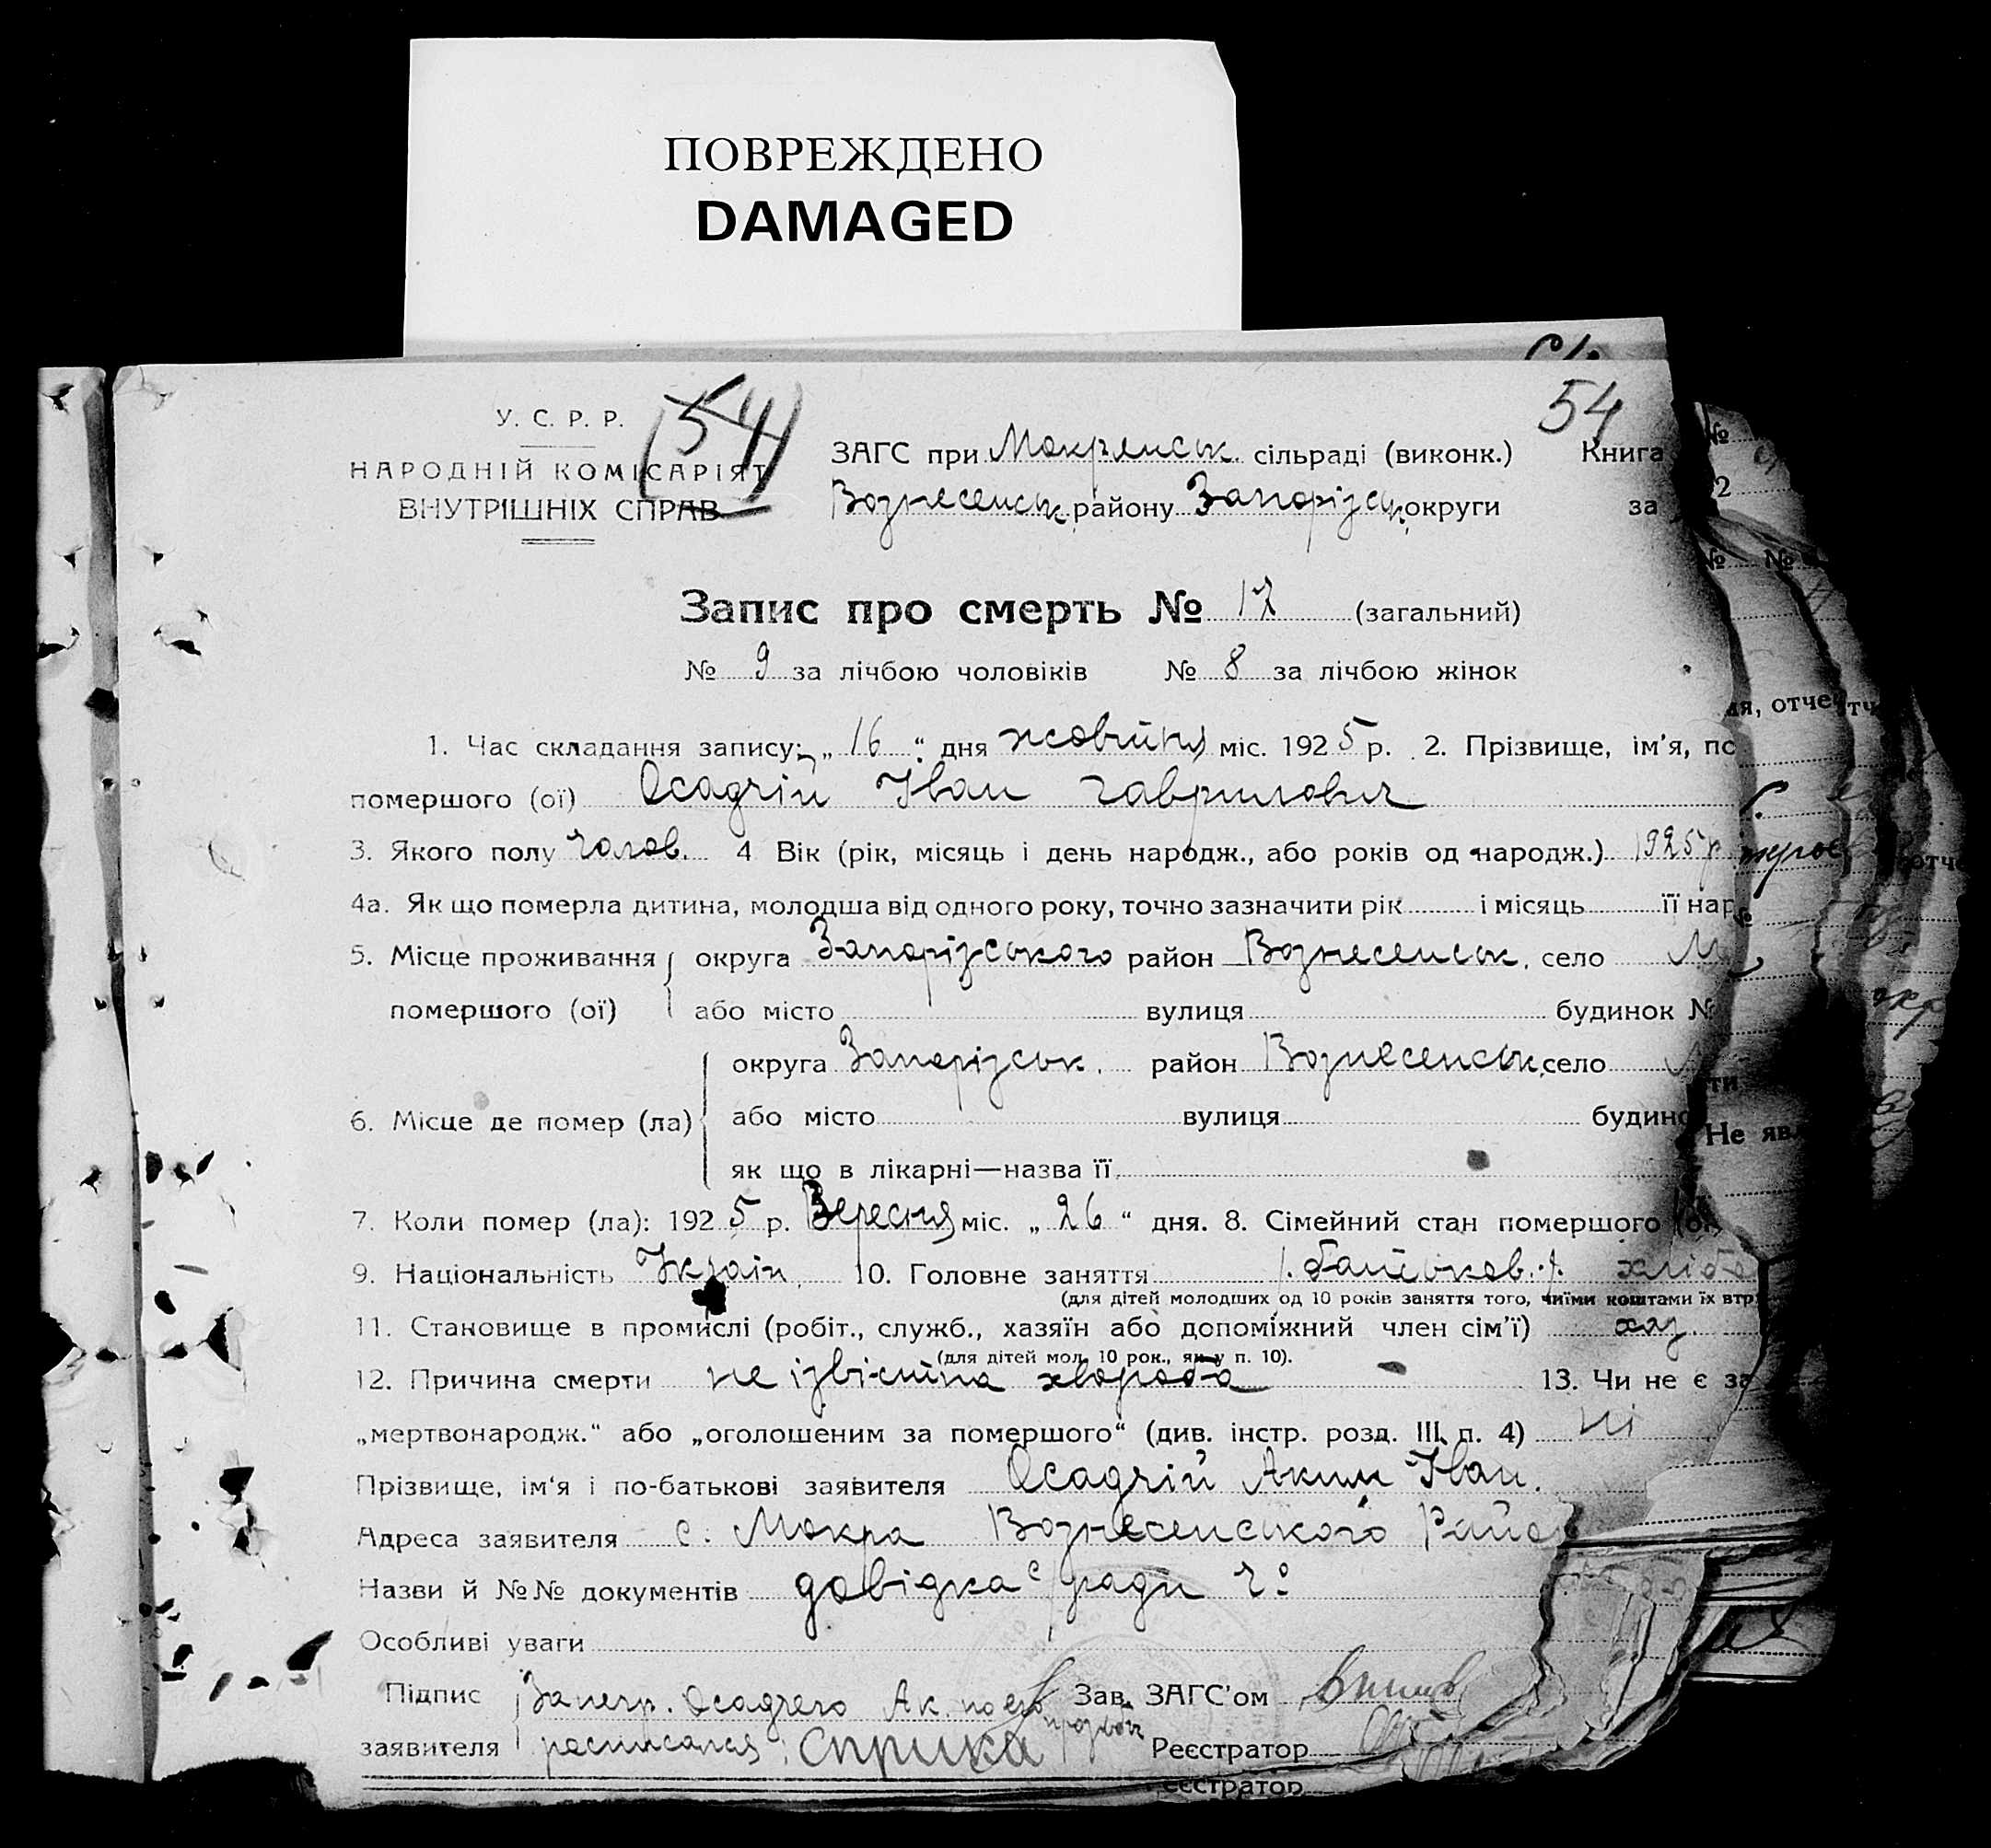 ПОВРЕЖДЕНО
DAMAGED
54
У. С. Р. Р.
(54)
НАРОДНІЙ КОМІСАРІЯТ
ВНУТРІШНІХ СПРАВ
ЗАГС при Мокрянськ. сільраді (виконк.) Книга
Вознесенськ. району Запорізськ. округи за
Запис про смерть № 17 (загальний)
№ 9 за лічбою чоловіків № 8 за лічбою жінок
1. Час складання запису: „16“ дня жовтня міс. 1925 р. 2. Прізвище, ім'я, по
помершого (ої) Осадчій Іван Гаврилович
3. Якого полу чолов. 4 Вік (рік, місяць і день народж., або років од народж.) 1925 р
4а. Як що померла дитина, молодша від одного року, точно зазначити рік і місяць її нар
5. Місце проживання округа Запорізського район Вознесенськ. село М
помершого (ої) або місто вулиця будинок №
округа Запорізськ. район Вознесенськ. село М
6. Місце де помер (ла) або місто вулиця будино
як що в лікарні—назва її
7. Коли помер (ла): 1925 р. Вересня міс. „26“ дня. 8. Сімейний стан помершого
9. Національність Україн. 10. Головне заняття батьков. хлібо
(для дітей молодших од 10 років заняття того, чиїми коштами їх втр
11. Становище в промислі (робіт., служб., хазяїн або допоміжний член сім'ї) хаз.
(для дітей мол. 10 рок., як у п. 10).
12. Причина смерти не ізвістна хвороба 13. Чи не є за
„мертвонародж.“ або „оголошеним за помершого“ (див. інстр. розд. III п. 4) ні
Прізвище, ім'я і по-батькові заявителя Осадчій Аким Іван.
Адреса заявителя с. Мокра Вознесенського Райо
Назви й №№ документів довідка с/ради
Особливі уваги
Підпис Осадчего Ак. по его Зав. ЗАГС'ом
заявителя росписался Реєстратор
еєстратор
№
2
№ №
ия, отче
отче
Не яв